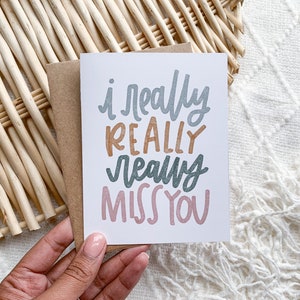 i really
REALLY
really
MISS YOU